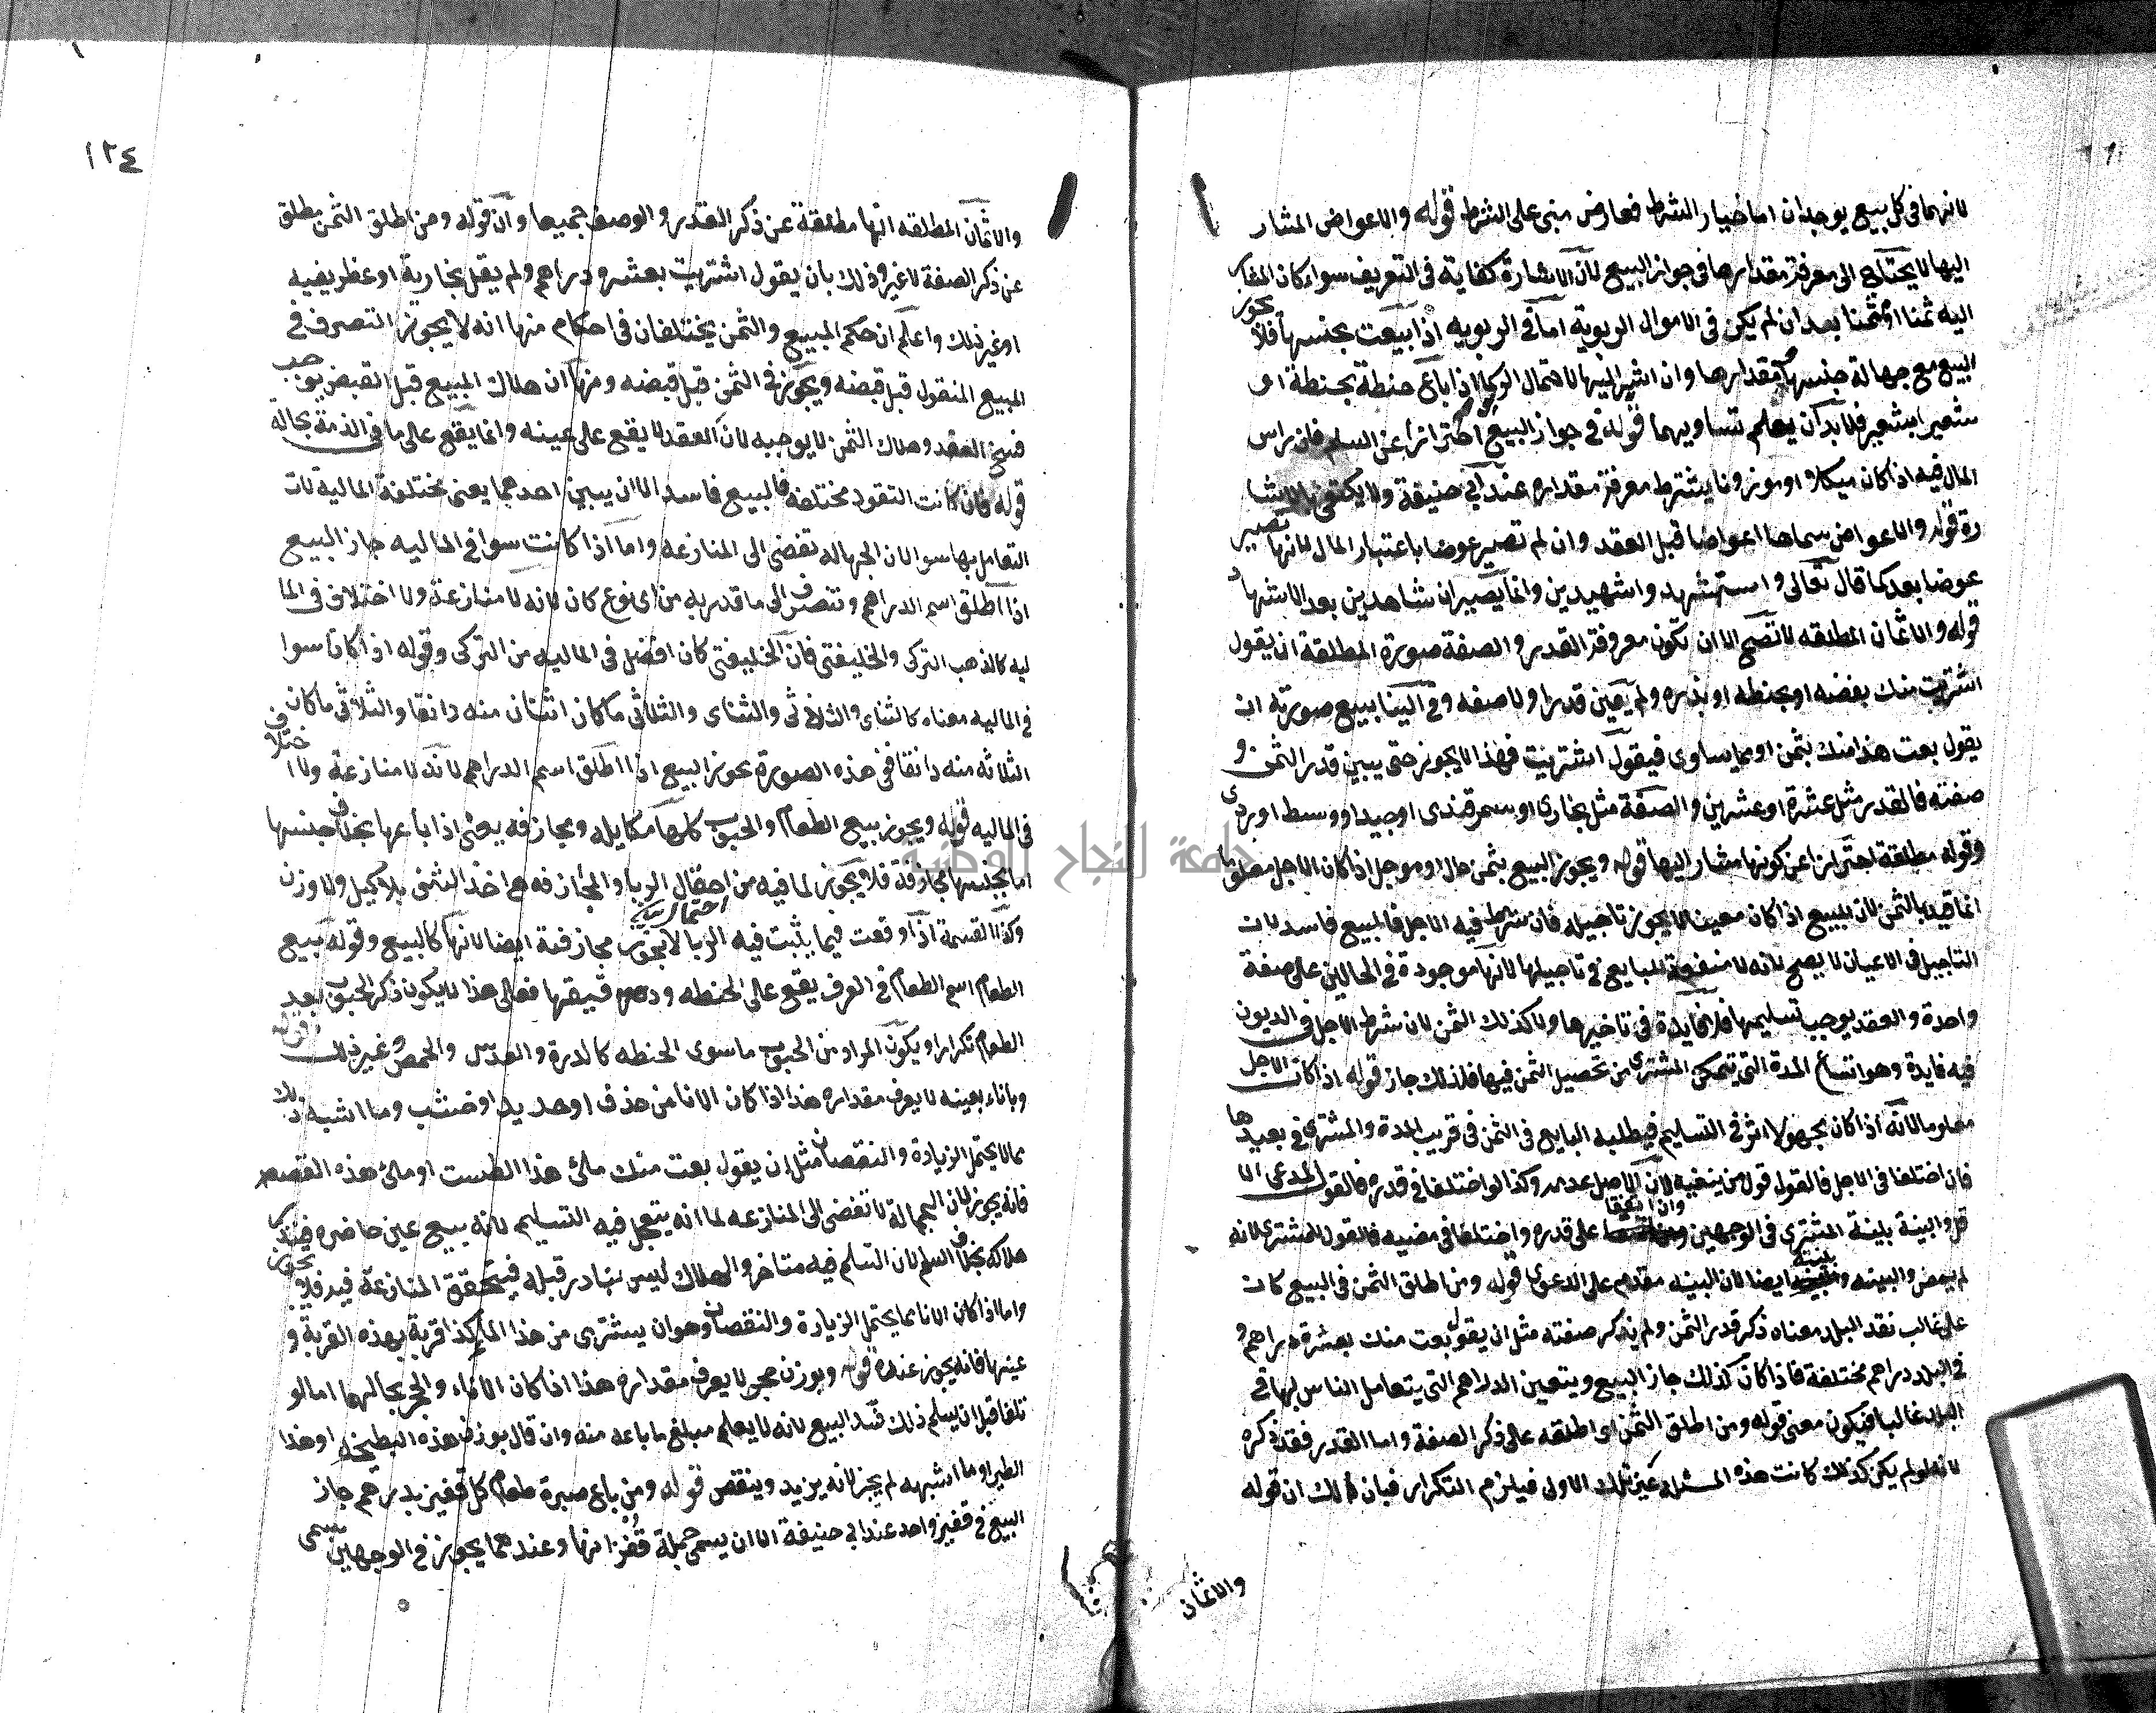 لانهما فى كل بيع يوجدان اما خيار الشرط فعارض مبنى على الشرط قوله والاعواض المشار
اليها لا يحتاج الى معرفة مقدارها فى جواز البيع لان الاشارة كفاية فى التعريف سواء كان المشار
اليه ثمنا او مثمنا بعد ان لم يكن فى الاموال الربوية اما فى الربويه اذا بيعت بجنسها فلا يجوز
البيع مع جهالة مقدارها وان اشير اليها لاحتمال الربا كما اذا باع حنطة بحنطة او
شعيرا بشعير فلا بد ان يعلم تساويهما قوله فى جواز البيع احترازا عن السلم فان راس
المال فيه اذا كان مكيلا او موزونا يشترط معرفة مقداره عند ابى حنيفة ولا يكتفى بالاشا
رة قوله والاعواض سماها اعواضا قبل العقد وان لم تصير عوضا باعتبار المال لانها تصير
عوضا بعد كما قال تعالى واستشهدوا شهيدين وانما يصيران شاهدين بعد الاشهاد
قوله والاثمان المطلقه لا تصح الا ان تكون معروفة القدر والصفة صورة المطلقة ان يقول
اشتريت منك بفضه او بحنطه او بذره ولم يعين قدرا ولا صفه وفى الينابيع صورته ان
يقول بعت هذا منك بثمن او بما يساوى فيقول اشتريت فهذا لا يجوز حتى يبين قدر الثمن و
صفته فالقدر مثل عشرة او عشرين والصفة مثل بخارى او سمرقندى او جيد او وسط او ردى
وقوله مطلقة احترازا عن كونها مشار اليها قوله ويجوز البيع بثمن حال او موجل اذا كان الاجل معلوما
انما قيد بالثمن لان المبيع اذا كان معينا لا يجوز تاجيله فان شرط فيه الاجل فالبيع فاسد لان
التاجيل فى الاعيان لا يصح لانه لا منفعة للبايع فى تاجيلها لانها موجودة فى الحالين على صفة
واحدة والعقد يوجب تسليمها فلا فايدة فى تاخيرها ولا كذلك الثمن لان شرط الاجل فى الديون
فيه فايدة وهو اتساع المدة التى يتمكن المشترى من تحصيل الثمن فيها فلذلك جاز قوله اذا كان الاجل
معلوما لانه اذا كان مجهولا اثر فى التسليم فيطلبه البايع فى الثمن فى قريب المدة والمشترى فى بعيدها
فان اختلفا فى الاجل فالقول قول من ينفيه لان الاصل عدمه وكذا لو اختلفا فى قدره فالقول لمدعى الا
قل والبينة بينة المشترى فى الوجهين وان اتفقا على قدره واختلفا فى مضيه فالقول للمشترى لانه
لم يمض والبينه بينته ايضا لان البينه مقدم على الدعوى قوله ومن اطلق الثمن فى البيع كان
على غالب نقد البلد معناه ذكر قدر الثمن ولم يذكر صفته مثل ان يقول بعت منك بعشرة دراهم و
فى البلد دراهم مختلفة فاذا كان كذلك جاز البيع ويتعين الدراهم التى يتعامل الناس بها فى
البلد غالبا فيكون معنى قوله ومن اطلق الثمن اى اطلقه على ذكر الصفة واما القدر فقد ذكره
لانه لو لم يكن كذلك كانت هذه المسئلة عين تلك الاولى فيلزم التكرار فبان لك ان قوله
والاثمان
١٢٤
والاثمان المطلقه انها مطلقة عن ذكر القدر والوصف جميعا وان قوله ومن اطلق الثمن مطلق
عن ذكر الصفة لا غير وذلك بان يقول اشتريت بعشره دراهم ولم يقل بخارية او غطريفيه
او غير ذلك واعلم ان حكم المبيع والثمن يختلفان فى احكام منها انه لا يجوز التصرف فى
المبيع المنقول قبل قبضه ويجوز فى الثمن قبل قبضه ومنها ان هلاك المبيع قبل القبض يوجب
فسخ العقد وهلاك الثمن لا يوجبه لان العقد لا يقع على عينه وانما يقع على ما فى الذمة بحاله
قوله فان كانت النقود مختلفه فالبيع فاسد الا ان يبين احدهما يعنى مختلفة الماليه لان
التعامل بها سوا لان الجهاله تفضى الى المنازعه واما اذا كانت سوا فى الماليه جاز البيع
اذا اطلق اسم الدراهم وتنصرف الى ما قدر به من اى نوع كان لانه لا منازعة ولا اختلاف فى الما
ليه كالذهب التركى والخليفتى فان الخليفتى كان افضل فى الماليه من التركى وقوله اذا كانا سوا
فى الماليه معناه كالثناى والثلاثى والثناى والثلاثى ما كان اثنان منه دانقا والثلاثى ما كان
الثلاثه منه دانقا ففى هذه الصورة يجوز البيع اذا اطلق اسم الدراهم لانه لا منازعة ولا اختلاف
فى الماليه قوله ويجوز بيع الطعام والحبوب كلها مكايله ومجازفه يعنى اذا باعها بخلاف جنسها
اما بجنسها مجازفة فلا يجوز لما فيه من احتمال الربا والمجازفه هى اخذ الشى بلا كيل ولا وزن
وكذا القسمة اذا وقعت فيما يثبت فيه الربا لا يجوز مجازفة ايضا لانها كالبيع وقوله بيع
الطعام اسم الطعام فى العرف يقع على الحنطه ودقيقها فعلى هذا لا يكون ذكر الحبوب بعد
الطعام تكرارا ويكون المراد من الحبوب ما سوى الحنطه كالذرة والعدس والحمص وغير ذلك قوله
وباناء بعينه لا يعرف مقداره هذا اذا كان الانا من خذف او حديد او خشب وما اشبه ذلك
مما لا يحتمل الزيادة والنقصان مثل ان يقول بعت منك ملئ هذا الطست او ملئ هذه القصعه
فانه يجوز لان الجهالة لا تفضى الى المنازعه لما انه يتعجل فيه التسليم لانه بيع عين حاضره فيندر
هلاكه بخلاف السلم لان التسلم فيه متاخر والهلاك ليس بنادر قبله فيتحقق المنازعة فيه فلا يجوز
واما اذا كان الانا مما يحتمل الزيادة والنقصان وهو ان يشترى من هذا الماء كذا قربة بهذه القربة و
عينها فانه يجوز عنده قوله وبوزن حجر لا يعرف مقداره هذا اذا كان الاناء والحجر بحالهما اما لو
تلفا قبل ان يسلم ذلك فسد البيع لانه لا يعلم مبلغ ما باعه منه وان قال بوزن هذه البطيخه او هذا
الطين او ما اشبهه لم يجز لانه يزيد وينقص قوله ومن باع صبرة طعام كل قفيز بدرهم جاز
البيع فى قفيز واحد عند ابى حنيفة الا ان يسمى جملة قفزانها وعندهما يجوز فى الوجهين سمى
جامعة النجاح الوطنية